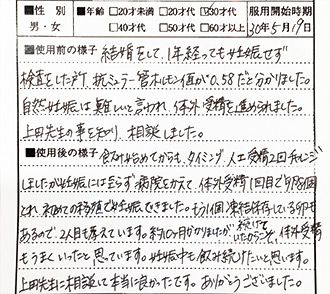 ■性別 ■年齢 □20才未満 □20才代 ☑30才代 服用開始時期
男・女 □40才代 □50才代 □60才以上 30年5月19日
■使用前の様子 結婚をして、1年経っても妊娠せず
検査をした所、抗ミュラー管ホルモン値が0.58だと分かりました。
自然妊娠は難しいと言われ、体外受精を進められました。
上田先生の事を知り、相談しました。
■使用後の様子 飲み始めてからも、タイミング、人工受精2回チャレンジ
しましたが妊娠には至らず病院をかえて、体外受精1回目で卵が個
とれ、初めての移植で妊娠できました。もう1個凍結保存している卵も
あるので、2人目も考えています。約10ヶ月かかりましたが、続けて
いたからこそ、体外受精
もうまくいったと思っています。妊娠中も飲み続けたいと思います。
上田先生に相談して本当に良かったです。ありがとうございました。